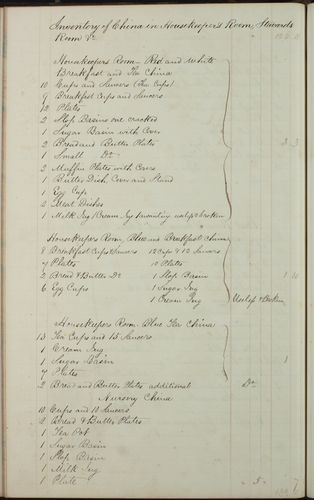 Inventory of China in Housekeepers Room, Stewards
Room &c
Housekeepers Room - Red and White
Breakfast and Tea China
10 Cups and Saucers (Tea Cups)
9 Breakfast Cups and Saucers
12 Plates
2 Slop Basins one cracked
1 Sugar Basin with Cover
2 Bread and Butter Plates 3 3
1 Small Do
2 Muffin Plates with Covers
1 Butter Dish, Cover and Stand
1 Egg Cup
2 Meat Dishes
1 Milk Jug 1 Cream Jug & broken
Housekeepers Room, Blue Breakfast China
8 Breakfast Cups & Saucers 12 Cups & 12 Saucers
7 Plates 10 Plates
2 Bread & Butter Do 1 Slop Basin 1 10
6 Egg Cups 1 Sugar Jug
1 Cream Jug Useless & Broken
Housekeepers Room Blue Tea China
13 Tea Cups and 15 Saucers
1 Cream Jug
1 Sugar Basin 1
7 Plates
2 Bread and Butter Plates additional Do
Nursery China
10 Cups and 10 Saucers
2 Bread & Butter Plates
1 Tea Pot
1 Sugar Basin
1 Slop Basin
1 Milk Jug
1 Plate 5